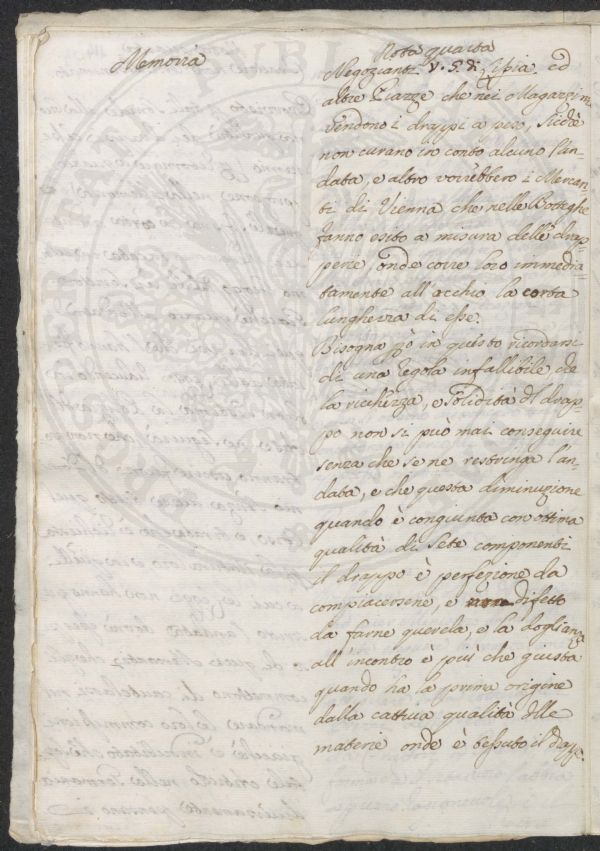 Memoria
Nota quarta
Negozianti v. g. di Lipsia ed
altre Piazze che nei Magazzini
vendono i drappi a pezze, sicchè
non curano in conto alcuno l'an-
data, e altro vorrebbero i Mercan-
ti di Vienna che nelle Botteghe
fanno esito a misura delle drap-
perie, onde corre loro immedia-
tamente all'occhio la corta
lunghezza di esse.
Bisogna pò in questo ricordarsi
di una regola infallibile, che
la ricchezza, e solidità dl drap-
po non si può mai conseguire
senza che se ne restringa l'an-
data, e che questa diminuzione
quando è congiunta con ottima
qualità di Sete componenti
il drappo è perfezione da
compiacersene, e non difetto
da farne querela, e la doglianza
all'incontro è più che giusta
quando ha la prima origine
dalla cattiva qualità dlle
materie onde è tessuto il drappo.